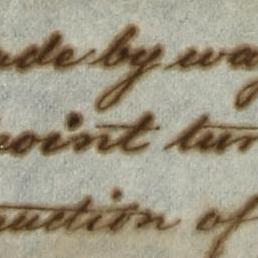 ade by way
point tur
ruction of